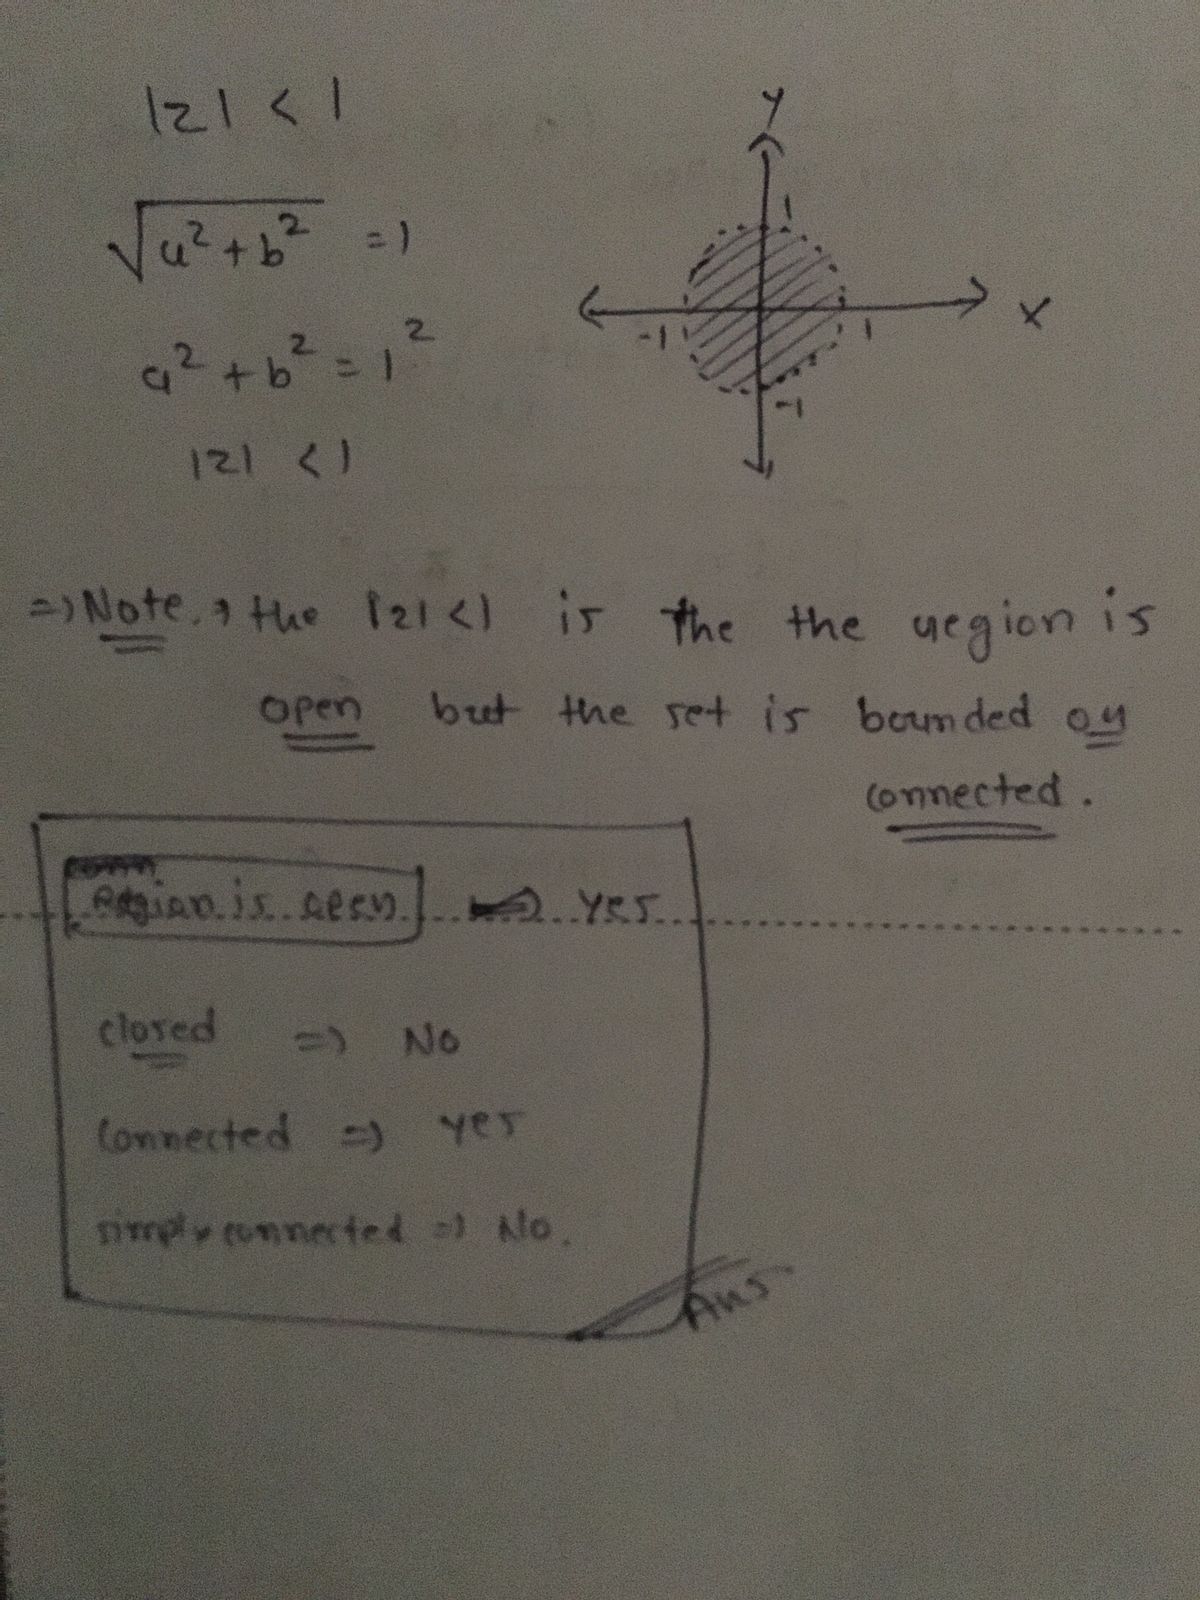 |z| < 1
√a²+b² = 1
a² + b² = 1²
|z| < 1
y
1
-1
1
x
-1
=> Note. → the |z| < 1 is the the region is
open but the set is bounded or
connected.
Region is open => yes
closed => No
Connected => yes
simply connected => No.
Ans